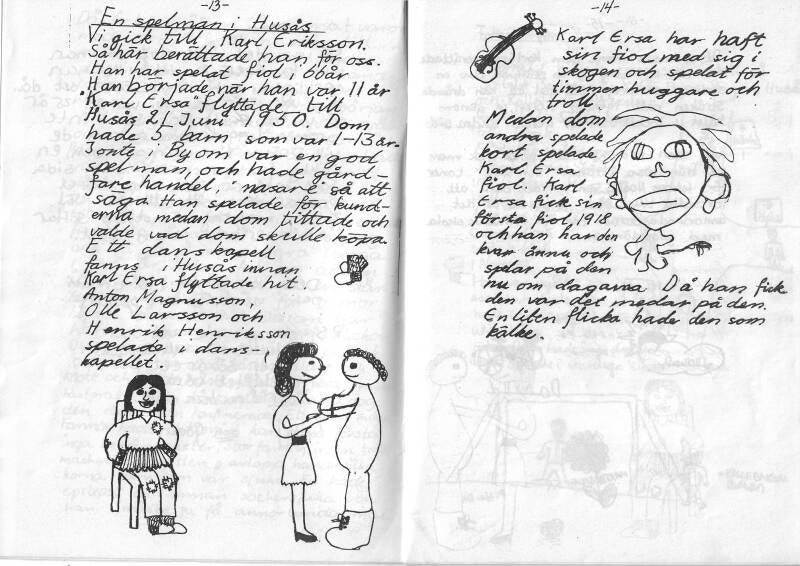 -13-
En spelman i Husås
Vi gick till Karl Eriksson.
Så här berättade han för oss.
Han har spelat fiol i 60år
Han började när han var 11 år
"Karl Ersa" flyttade till
Husås 21 Juni 1950. Dom
hade 5 barn som var 1-13 år.
Jonte i Byom, var en god
spelman, och hade gård-
fare handel, "nasare" så att
säga. Han spelade för kund-
erna medan dom tittade och
valde vad dom skulle köpa.
Ett danskapell
fanns i Husås innan
Karl Ersa flyttade hit.
Anton Magnusson,
Olle Larsson och
Henrik Henriksson
spelade i dans-
kapellet.
-14-
Karl Ersa har haft
sin fiol med sig i
skogen och spelat för
timmer huggare och
troll.
Medan dom
andra spelade
kort spelade
Karl Ersa
fiol. Karl
Ersa fick sin
första fiol 1918
och han har den
kvar ännu och
spelar på den
nu om dagarna. Då han fick
den var det medar på den.
En liten flicka hade den som
kälke.